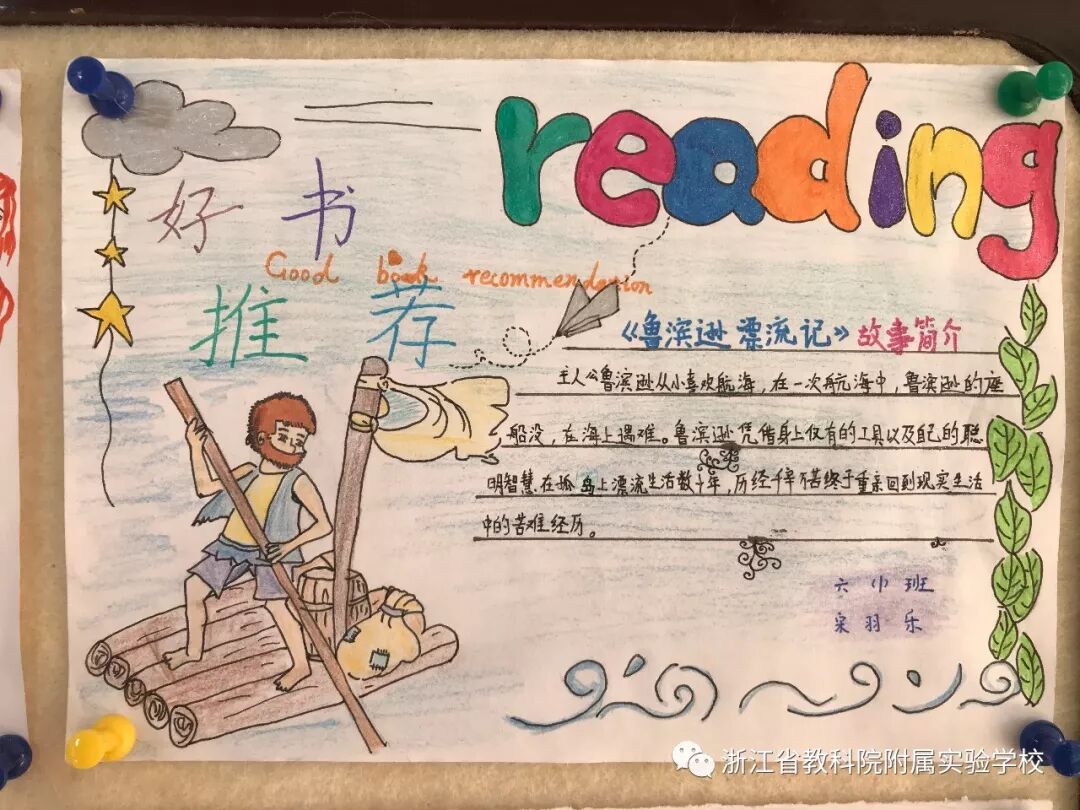 reading
好书
Good book recommendation
推荐
《鲁滨逊漂流记》故事简介
主人公鲁滨逊从小喜欢航海，在一次航海中，鲁滨逊的座
船没，在海上遇难。鲁滨逊凭借身上仅有的工具以及自己的聪
明智慧在孤岛上漂流生活数十年，历经千辛万苦终于重亲回到现实生活
中的苦难经历。
六 班
羽乐
浙江省教科院附属实验学校